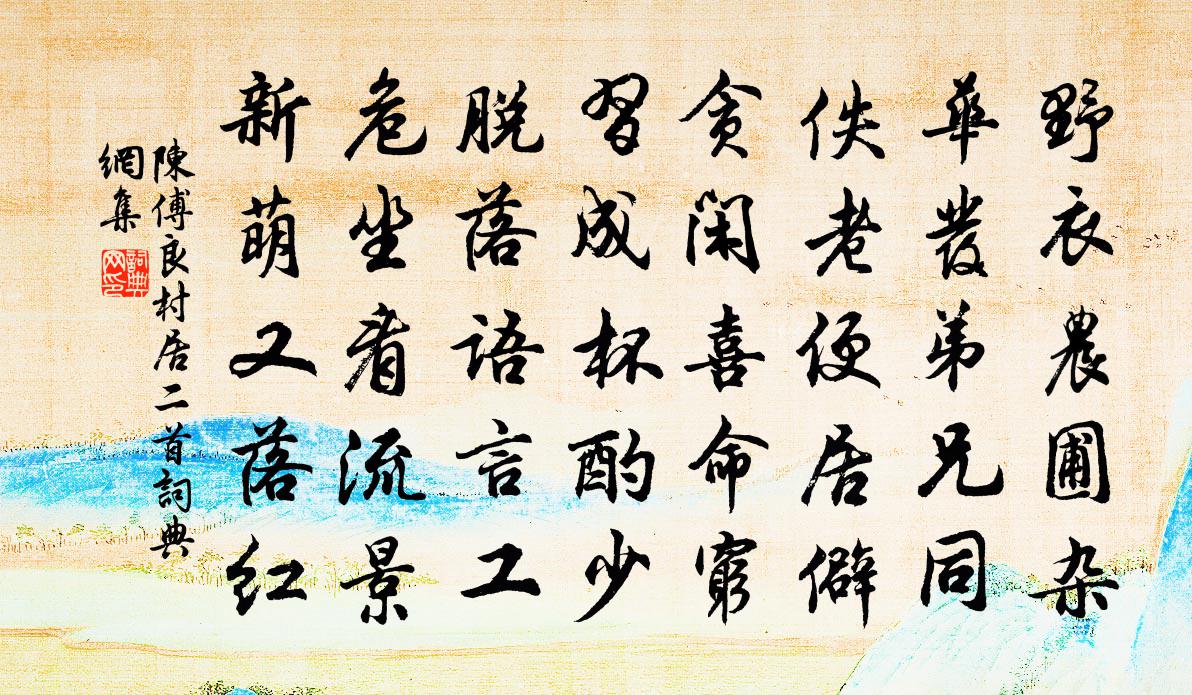 野衣農圃杂
華发弟兄同
佚老便居僻
贪闲喜命窮
習成杯酌少
脱落語言工
危坐看流景
新萌又落红
陳傅良村居二首詞典
網集
詞典
网印